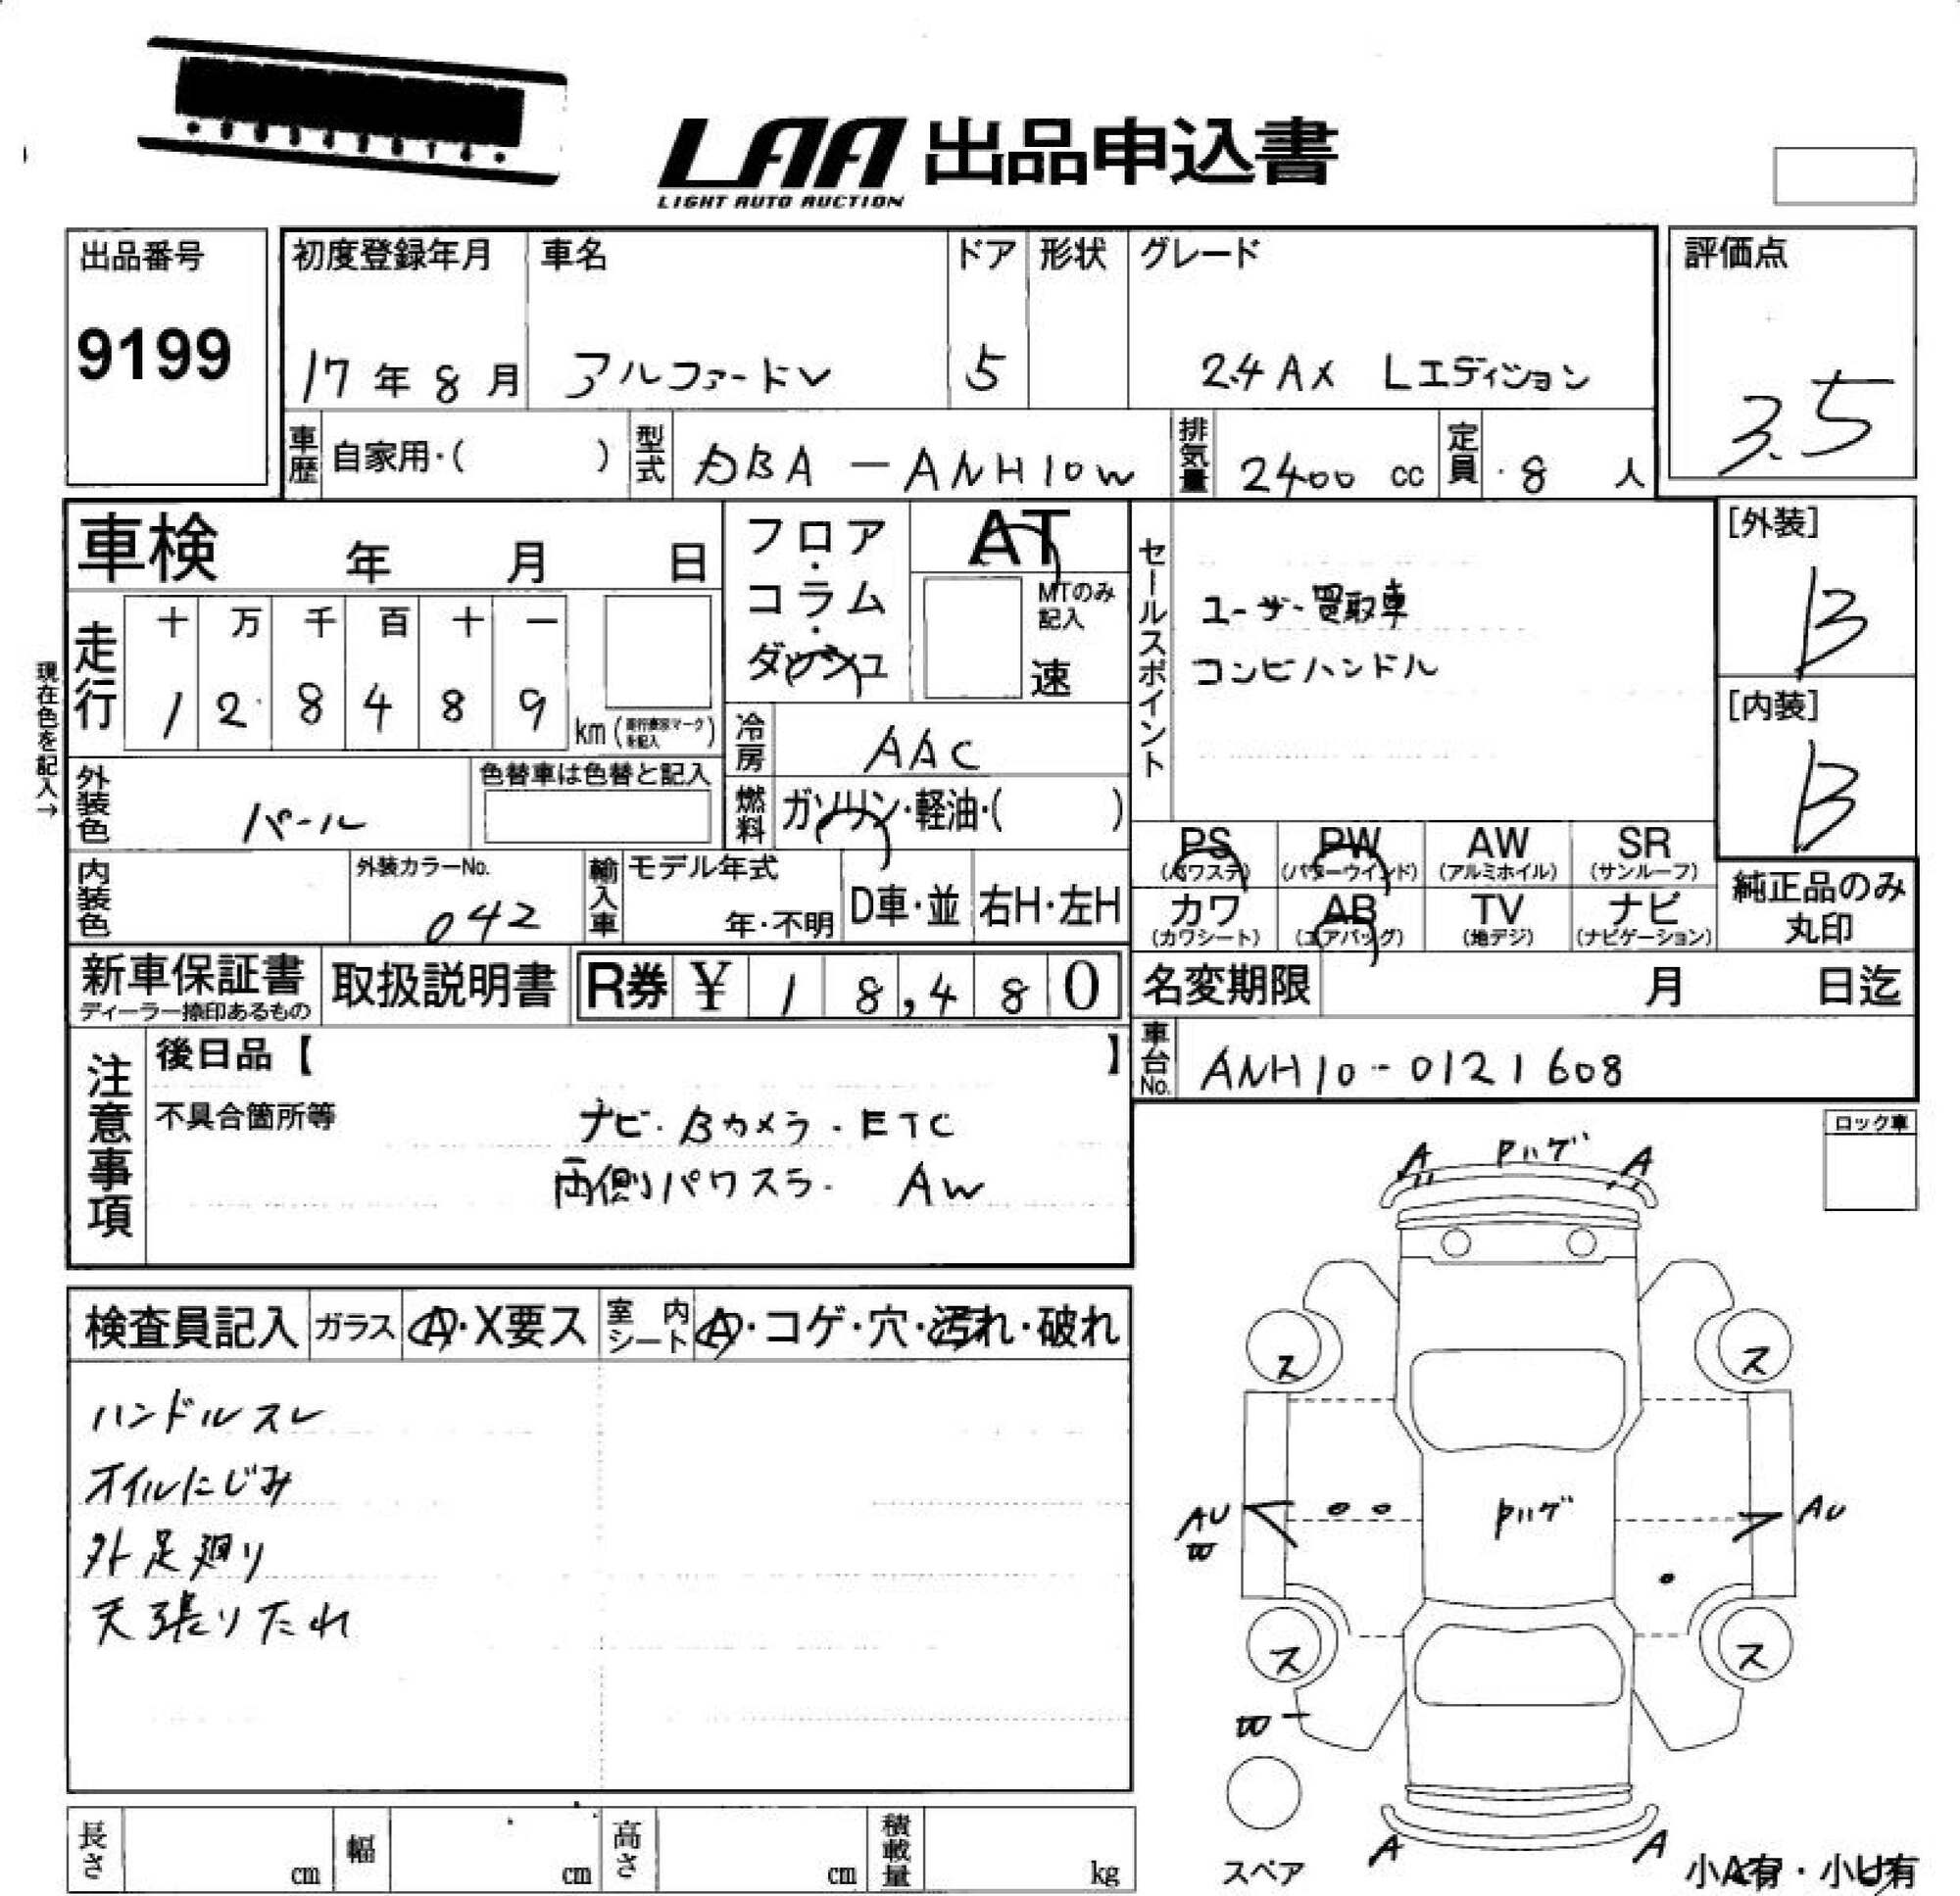 LAA 出品申込書
LIGHT AUTO AUCTION
出品番号
9199
初度登録年月 車名 ドア 形状 グレード
17年 8月 アルファードV 5 2.4 AX Lエディション
評価点
3.5
車歴 自家用・( ) 型式 DBA-ANH10W 排気量 2400 cc 定員 8 人
車検 年 月 日
フロア・コラム・ダッシュ
AT
MTのみ記入
速
セールスポイント
ユーザー買取車
コンビハンドル
[外装]
B
[内装]
B
現在色を記入→
走行 十 万 千 百 十 一
1 2 8 4 8 9 km
冷房 AAC
外装色 パール
色替車は色替と記入
燃料 ガソリン・軽油・( )
内装色
外装カラーNo.
042
輸入車 モデル年式
年・不明 D車・並 右H・左H
PS (パワステ) PW (パワーウインド) AW (アルミホイル) SR (サンルーフ)
カワ (カワシート) AB (エアバッグ) TV (地デジ) ナビ (ナビゲーション)
純正品のみ丸印
新車保証書
ディーラー捺印あるもの
取扱説明書 R券 ¥ 18,480
名変期限 月 日迄
車台No. ANH10-0121608
注意事項
後日品【 】
不具合箇所等
ナビ・Bカメラ・ETC
両側パワスラ. AW
ロック車
検査員記入 ガラス A・X要ス 室内シート A・コゲ・穴・汚れ・破れ
ハンドルスレ
オイルにじみ
外足廻り
天張りたれ
A Pハゲ A
ス ス
AU W Pハゲ AU
ス ス
W
A A
スペア
小A有・小U有
長さ cm 幅 cm 高さ cm 積載量 kg